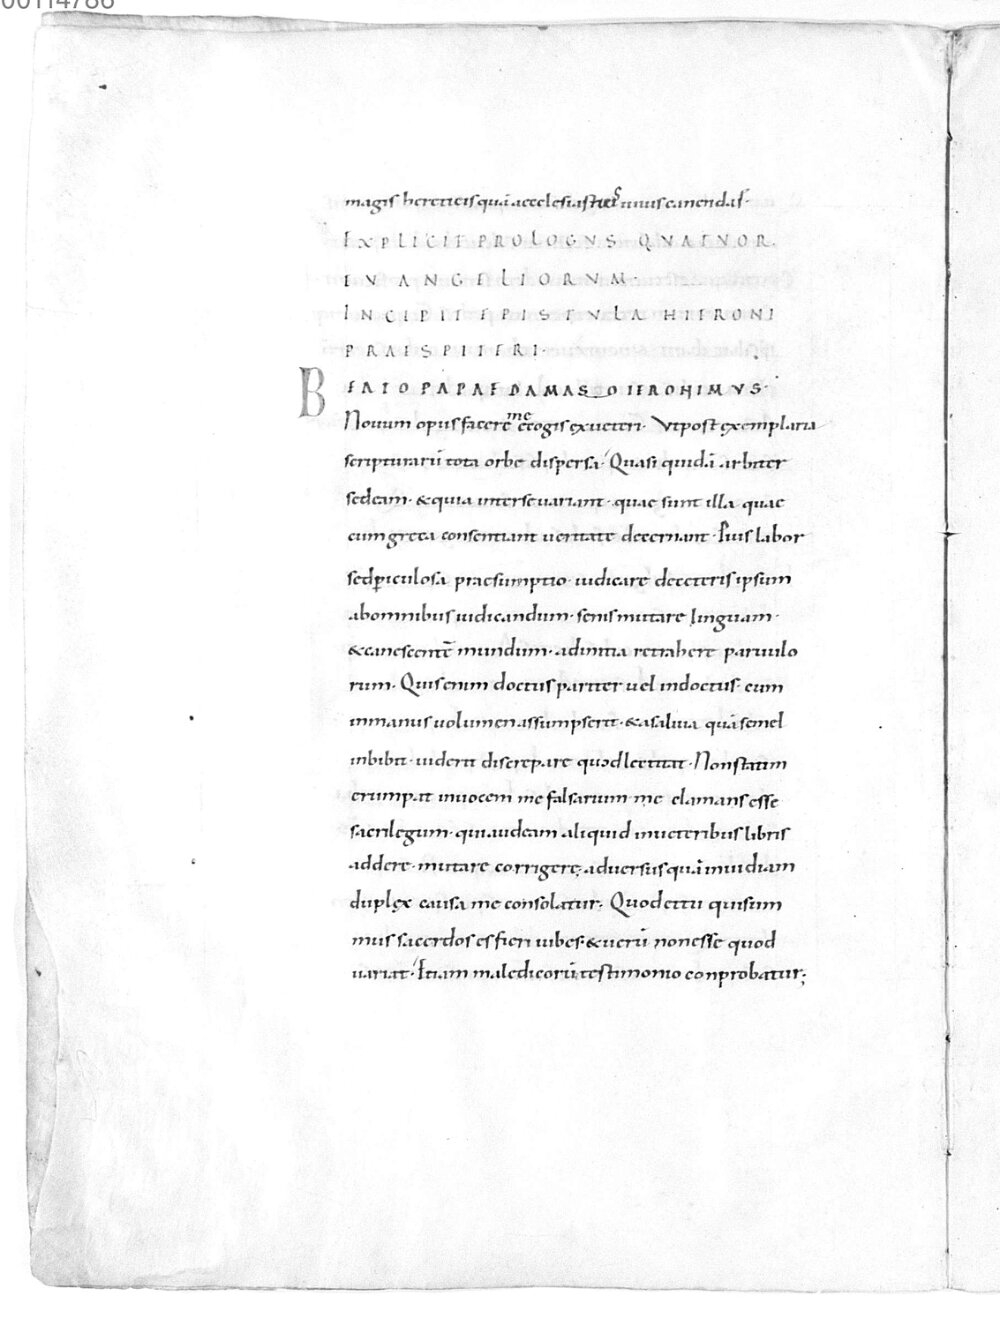 magis hereticis quā aecclesiasticis uiuis canendas·
EXPLICIT PROLOGVS QVATVOR
EVANGELIORVM·
INCIPIT EPISTVLA HIERONI
PRAESPITERI·
BEATO PAPAE DAMASO IERONIMVS·
Nouum opus facere me cogis ex ueteri· Vt post exemplaria
scripturarū tota orbe dispersa· Quasi quidā arbiter
sedeam· & quia inter se uariant· quae sunt illa quae
cum greca consentiant ueritate decernant· Pius labor
sed periculosa praesumptio· iudicare de ceteris ipsum
ab omnibus iudicandum· senis mutare linguam·
& canescentē mundum· ad initia retrahere paruulo
rum· Quis enim doctus pariter uel indoctus· cum
in manus uolumen assumpserit· & a saliua quā semel
inbibit· uiderit discrepare quod lectitat· Non statim
erumpat in uocem me falsarium me clamans esse
sacrilegum· qui audeam aliquid in ueteribus libris
addere· mutare corrigere; aduersus quā inuidiam
duplex causa me consolatur; Quod et tu qui sum
mus sacerdos es fieri iubes· & uerū non esse quod
uariat· Etiam maledicorū testimonio conprobatur;